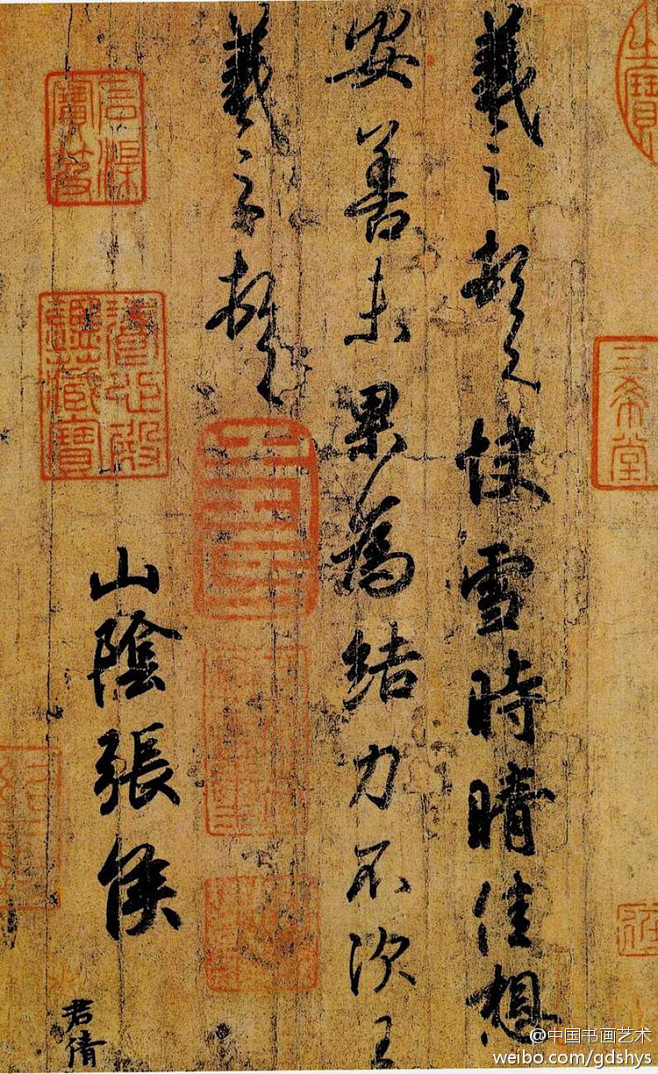 羲之頓首快雪時晴佳想
安善未果為結力不次王
羲之頓首
山陰張侯
君倩
三希堂
@中国书画艺术
weibo.com/gdshys